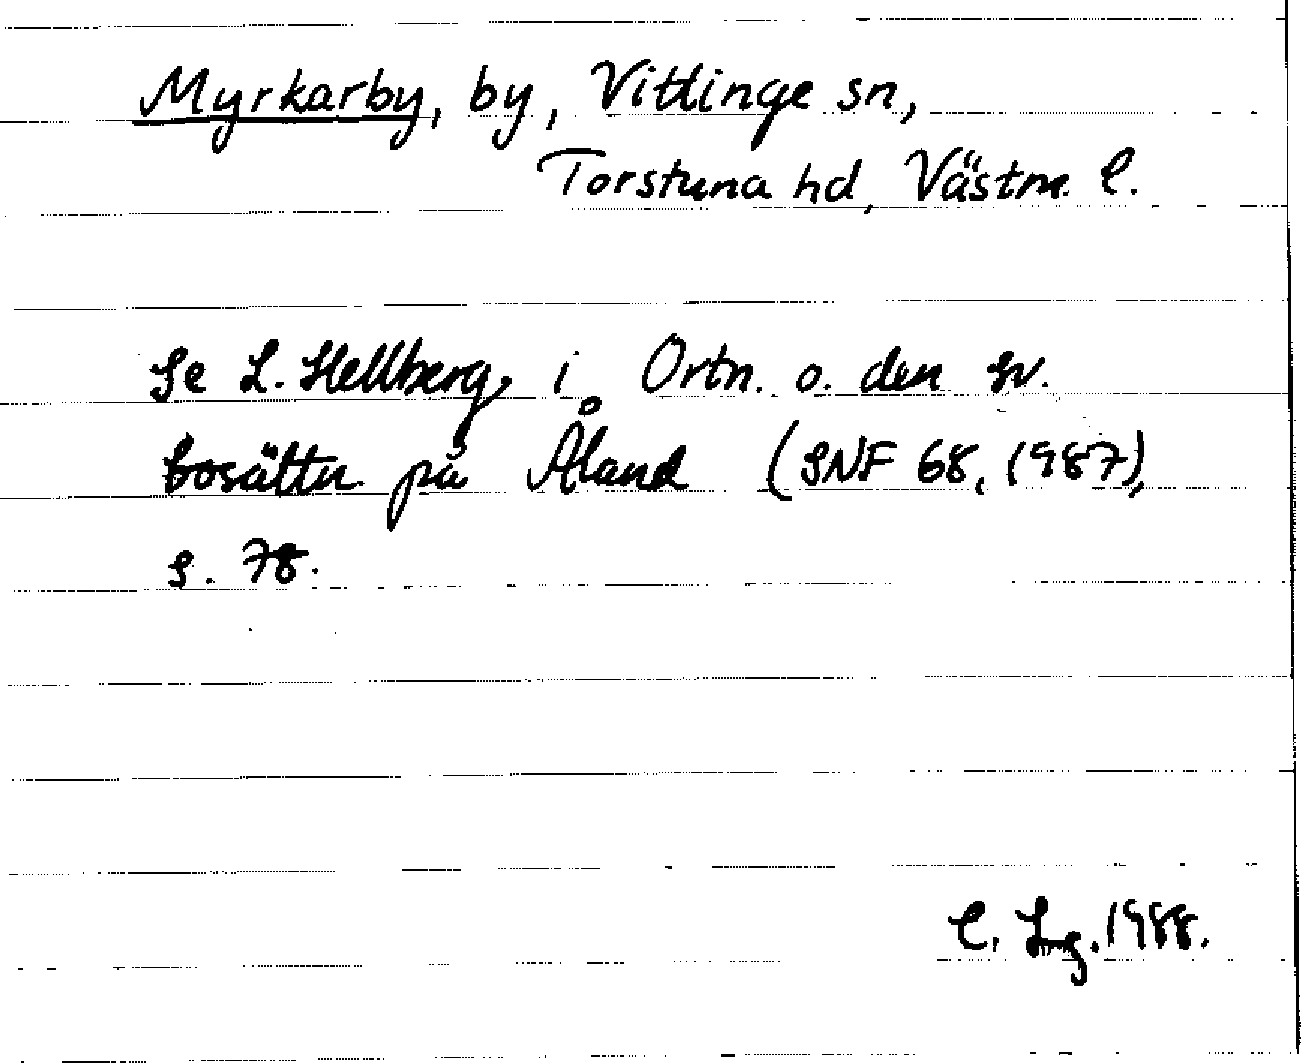 Myrkarby, by, Vittinge sn,
Torstuna hd, Västm. l.
Se L. Hellberg, i Ortn. o. den sv.
bosättn. på Åland (SNF 68, (1987),
s. 78.
C. Lng. 1988.